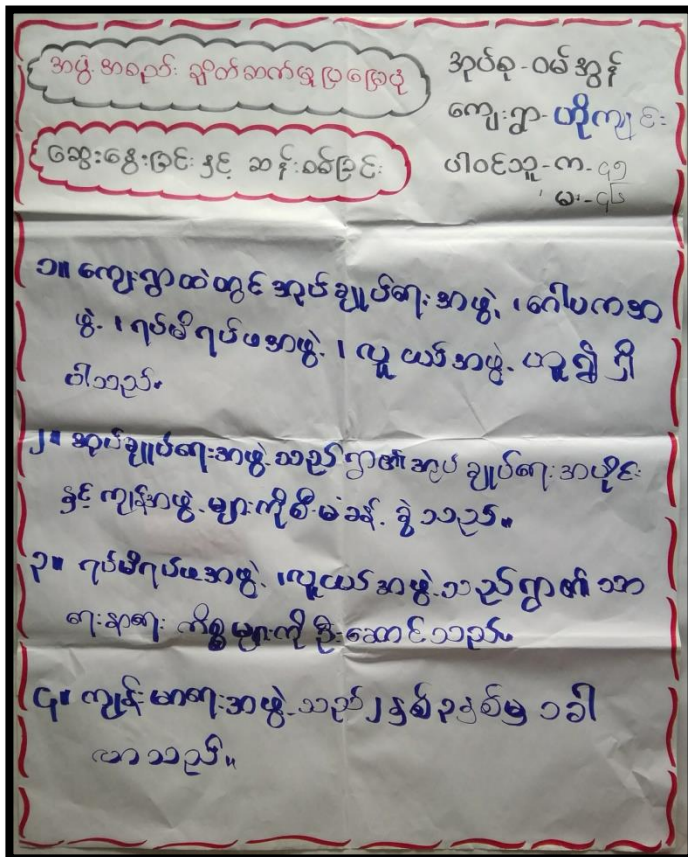 အဖွဲ့အစည်း ချိတ်ဆက်မှုပြမြေပုံ
ဆွေးနွေးခြင်းနှင့် ဆန်းစစ်ခြင်း
အုပ်စု - ဝမ်အွန်
ကျေးရွာ - ဟိုကျင်း
ပါဝင်သူ - က - ၄၅
မ -
၁။ ကျေးရွာထဲတွင် အုပ်ချုပ်ရေးအဖွဲ့၊ ဂေါပကအ
ဖွဲ့၊ ရပ်မိရပ်ဖအဖွဲ့၊ လူငယ်အဖွဲ့ ဟူ၍ ရှိ
ပါသည်။
၂။ အုပ်ချုပ်ရေးအဖွဲ့သည် ရွာ၏ အုပ်ချုပ်ရေးအပိုင်း
နှင့် ကျန်အဖွဲ့များကို စီမံခန့်ခွဲသည်။
၃။ ရပ်မိရပ်ဖအဖွဲ့၊ လူငယ်အဖွဲ့သည် ရွာ၏ သာ
ရေးနာရေး ကိစ္စများကို ဦးဆောင်သည်။
၄။ ကျန်းမာရေးအဖွဲ့သည် ၂နှစ် ၃နှစ်မှ ၁ခါ
လာသည်။